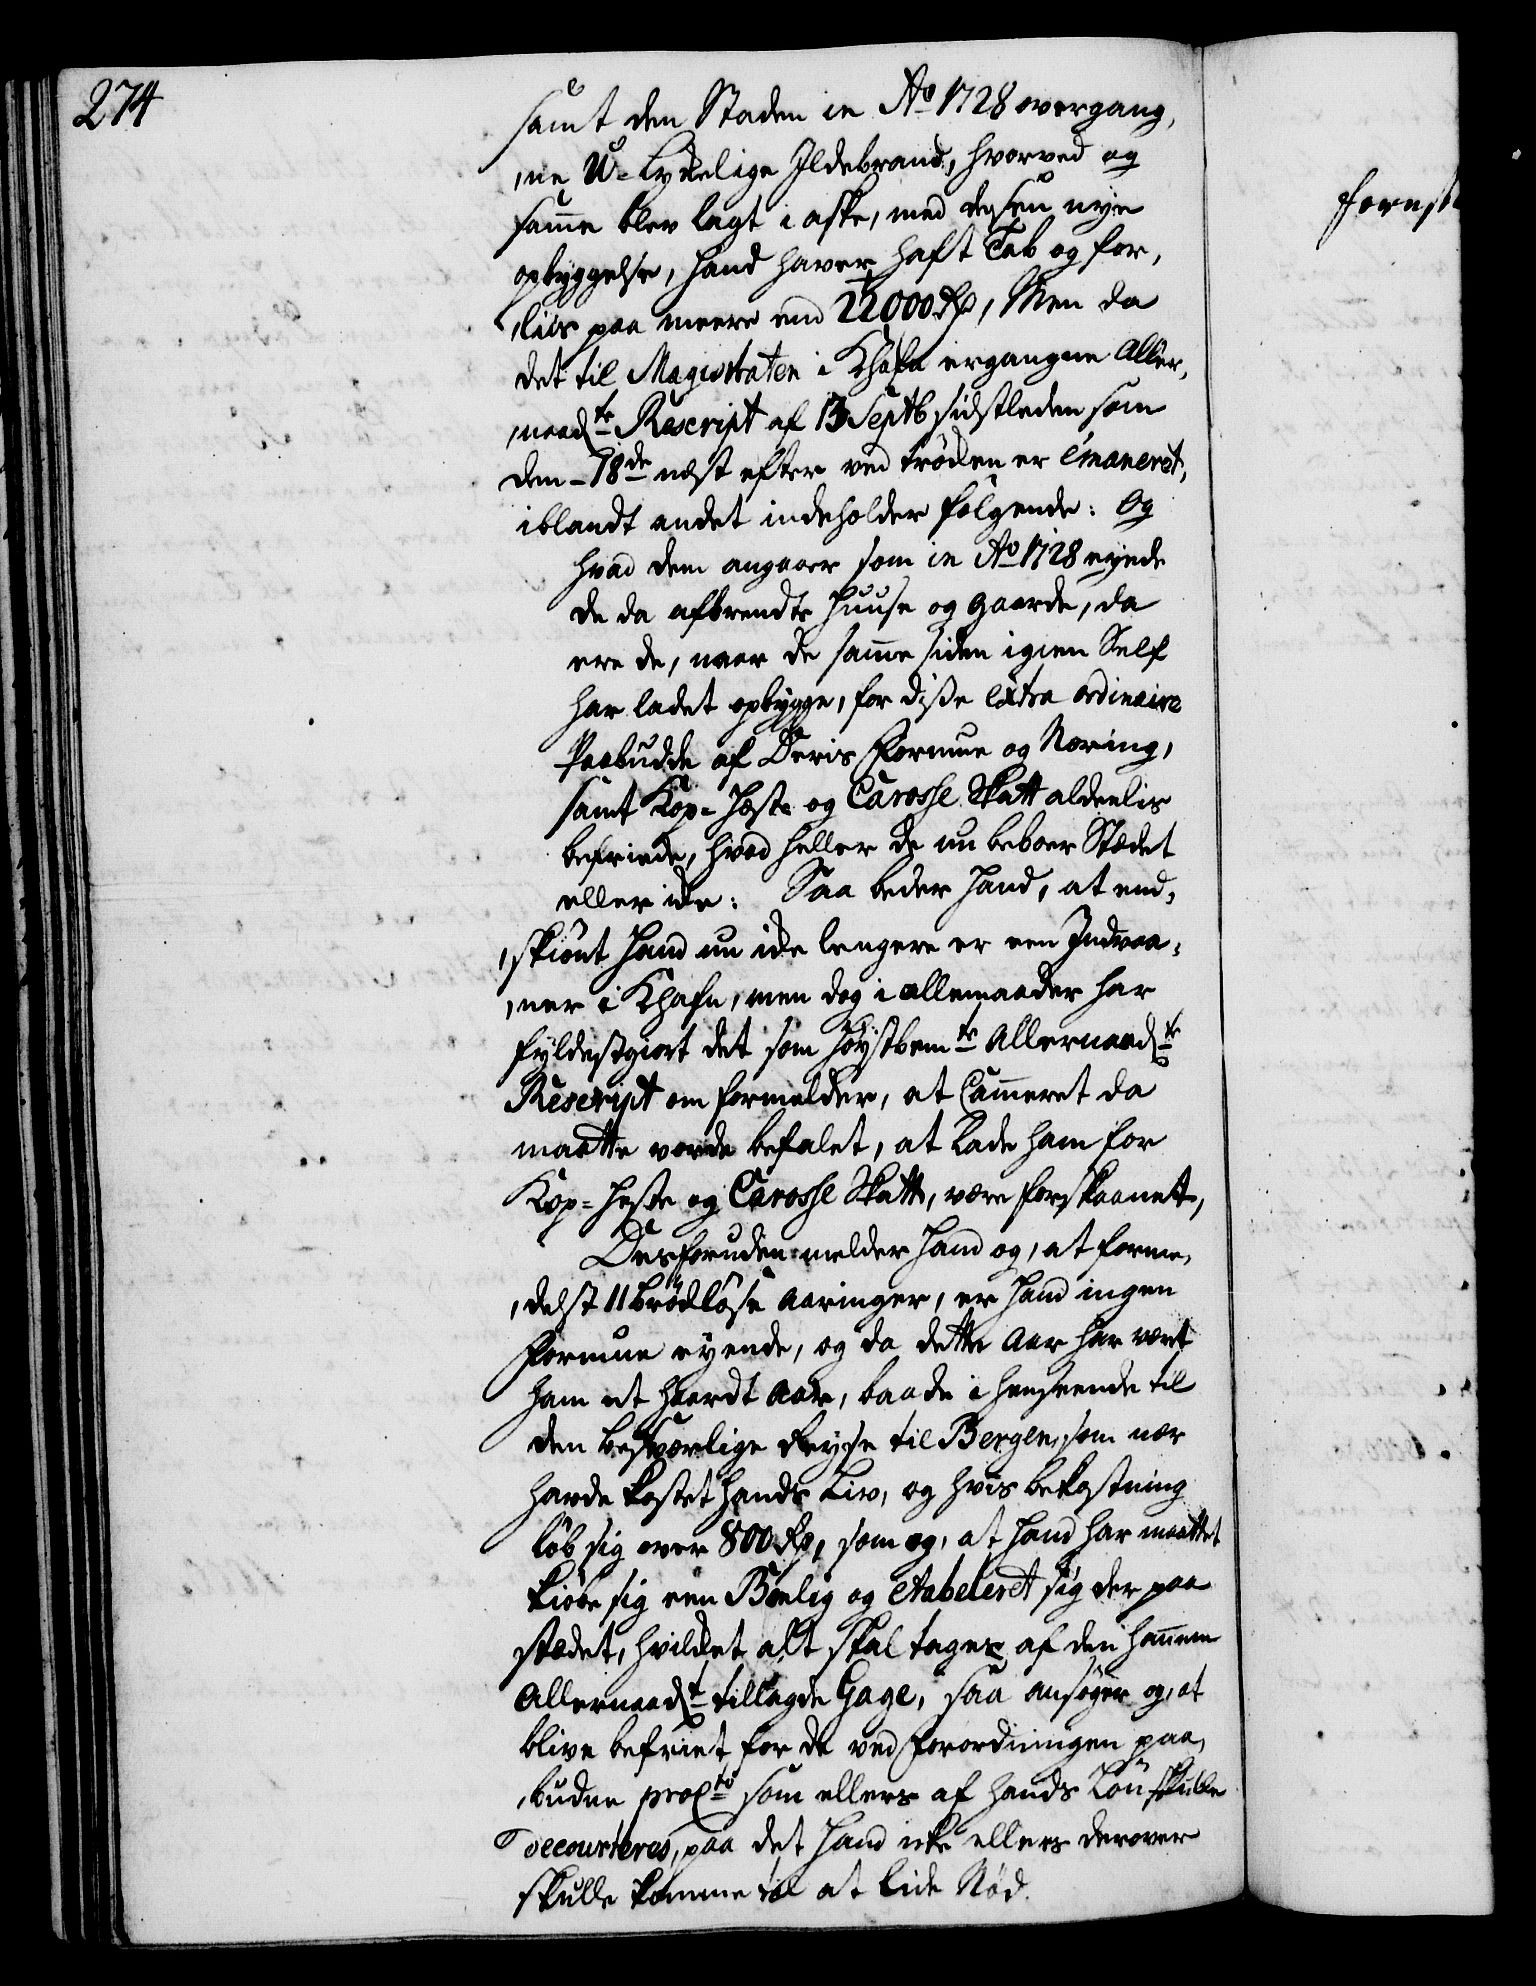 274
samt den Staden in Ao 1728 overgang,
,ne U-Lykkelige Ildebrand, hvorved og
samme blev lagt i aske, med dessen nye
opbyggelse, hand haver haft Tab og for,
,liis paa meere end 22000 Rd, Men da
det til Magistraten i Khafn ergangne Aller,
,naadte Rescript af 13 Septb sidstleden som
dem 18de næst efter ved trÿcken er emaneret,
iblandt andet indeholder følgende: Og
hvad dem angaaer som in Ao 1728 eyede
de da afbrendte Huuse og gaarde, da
ere de, naar de samme siden igien Self
har ladet opbygge, for disse extra ordinaire
Paabudde af Deris Formue og Næring,
samt Kop- Hæste og Carosse Skatt aldeelis
befriede, hvad heller de nu beboer Stædet
eller icke: Saa beder Hand, at end,
,skiønt Hand nu icke lengere er een Indvaa,
,ner i Khafn, men dog i allemaader har
fyldestgiort det som høystbemte Allernaadte
Rescript om formelder, at Cammeret da
maatte vorde befalet, at Lade ham for
Kop- Heste og Carosse Skatt, være forskaanet,
Desforuden melder Hand og, at forme,
,delst 11 brødløse Aaringer, er Hand ingen
Formue eyende, og da dette Aar har vært
ham et haardt Aar, baade i henseende til
den besværlige Reyse til Bergen, som nær
havde kostet Hands Liv, og hvis bekostning
løb sig over 800 Rd, som og, at Hand har maattet
kiøbe sig een Boelig og etabeleret sig der paa
stædet, hvilcket alt skal tages af den hannem
Allernaadt tillagde Gage, saa ansøger og, at
blive befriet for de ved Forordningen paa,
,budne procto som ellers af hands Løn skulle
decourteres, paa det Hand icke ellers derover
skulle komme til at lide Nød.
fornst